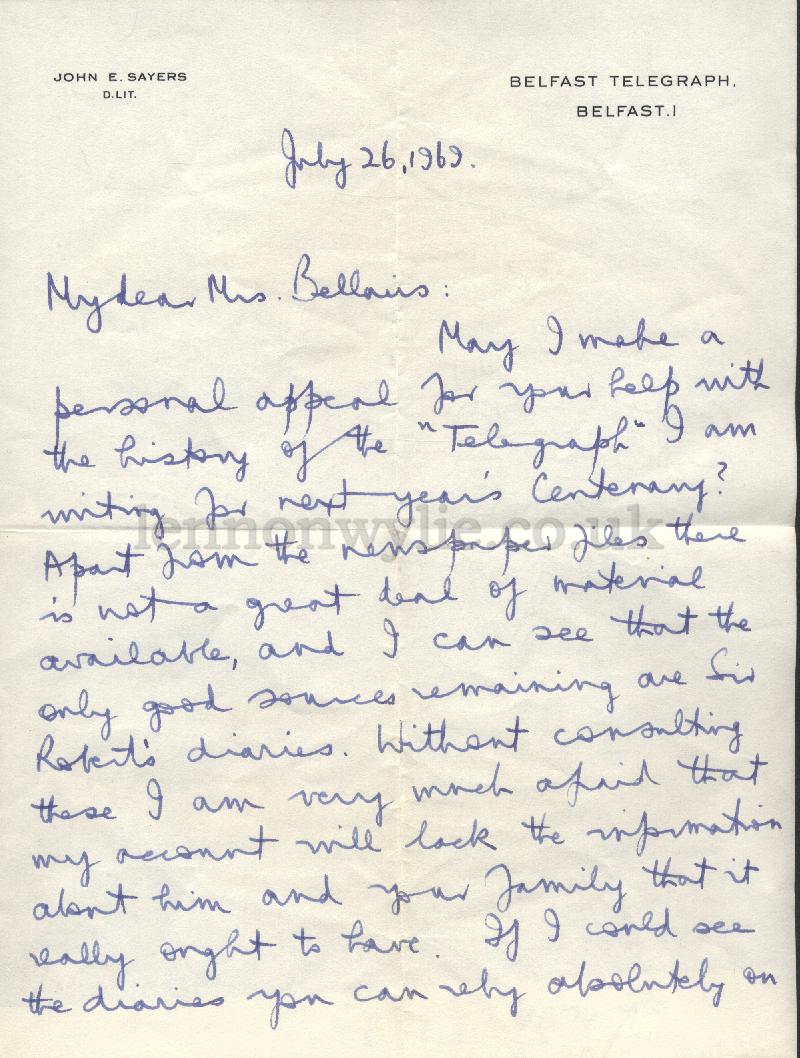 JOHN E. SAYERS
D.LIT.
BELFAST TELEGRAPH,
BELFAST.1
July 26, 1969.
My dear Mrs. Bellairs:
May I make a
personal appeal for your help with
the history of the "Telegraph" I am
writing for next year's Centenary?
lennonwylie.co.uk
Apart from the newspaper files there
is not a great deal of material
available, and I can see that the
only good sources remaining are Sir
Robert's diaries. Without consulting
these I am very much afraid that
my account will lack the information
about him and your family that it
really ought to have. If I could see
the diaries you can rely absolutely on